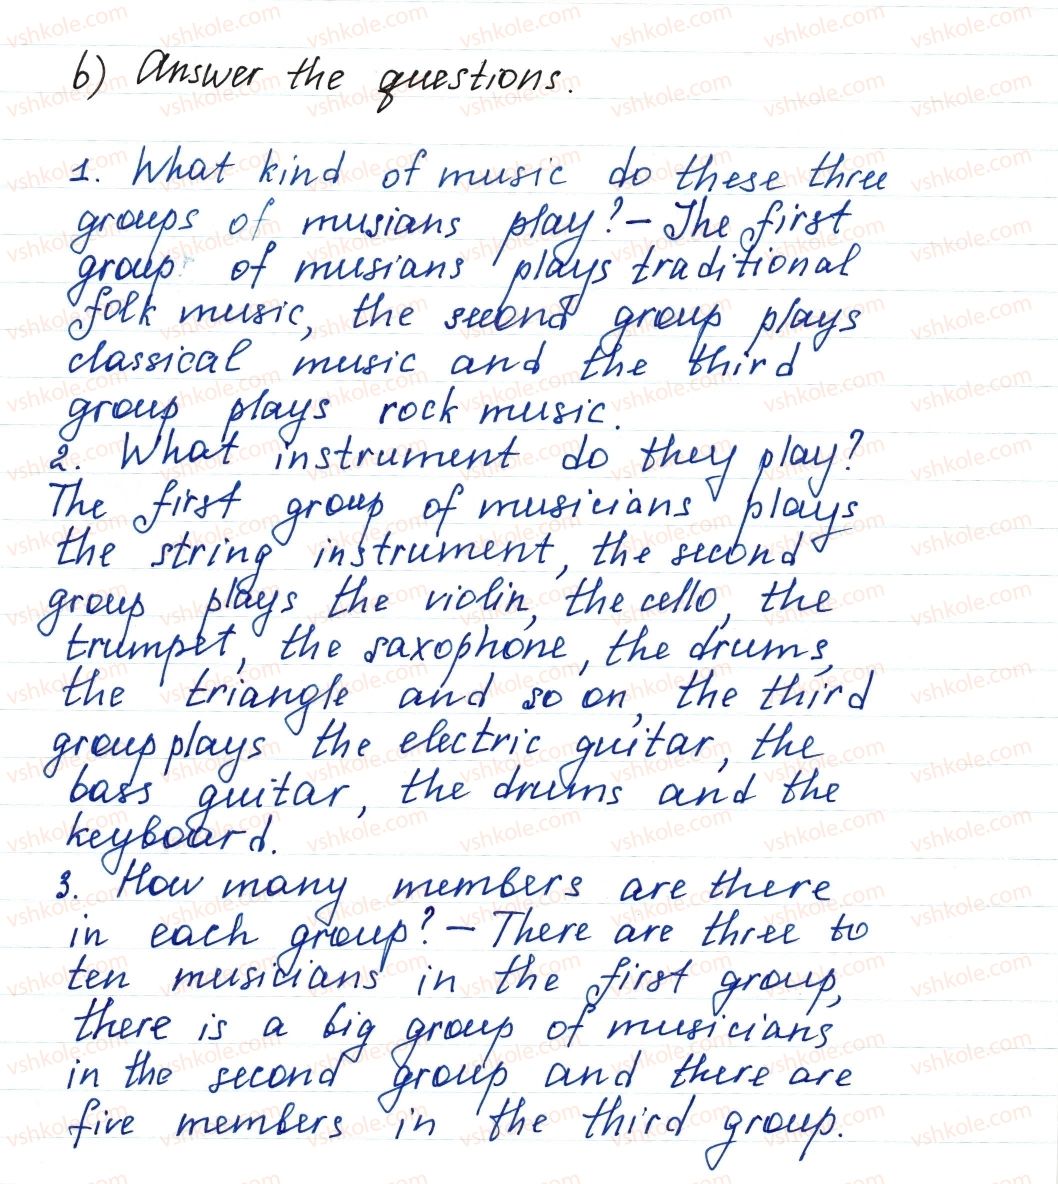 b) Answer the questions.
1. What kind of music do these three
groups of musians play? – The first
group of musians plays traditional
folk music, the second group plays
classical music and the third
group plays rock music.
2. What instrument do they play?
The first group of musicians plays
the string instrument, the second
group plays the violin, the cello, the
trumpet, the saxophone, the drums,
the triangle and so on, the third
group plays the electric guitar, the
bass guitar, the drums and the
keyboard.
3. How many members are there
in each group? – There are three to
ten musicians in the first group,
there is a big group of musicians
in the second group and there are
five members in the third group.
vshkole.com